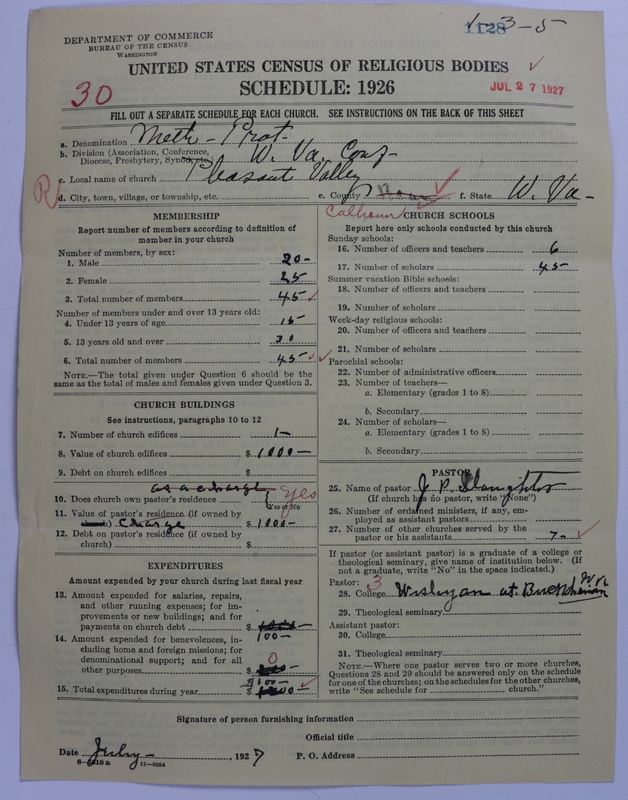 1-3-5
1128
DEPARTMENT OF COMMERCE
BUREAU OF THE CENSUS
WASHINGTON
UNITED STATES CENSUS OF RELIGIOUS BODIES
SCHEDULE: 1926
30
JUL 27 1927
FILL OUT A SEPARATE SCHEDULE FOR EACH CHURCH. SEE INSTRUCTIONS ON THE BACK OF THIS SHEET
a. Denomination Meth- Prot-
b. Division (Association, Conference,
Diocese, Presbytery, Synod, etc.) W. Va. Conf-
c. Local name of church Pleasant Valley
R
d. City, town, village, or township, etc. e. County f. State W. Va-
Calhoun
MEMBERSHIP
Report number of members according to definition of
member in your church
Number of members, by sex:
1. Male 20-
2. Female 25
3. Total number of members 45
Number of members under and over 13 years old:
4. Under 13 years of age 15
5. 13 years old and over 30
6. Total number of members 45
NOTE.—The total given under Question 6 should be the
same as the total of males and females given under Question 3.
CHURCH BUILDINGS
See instructions, paragraphs 10 to 12
7. Number of church edifices 1-
8. Value of church edifices $ 1000-
9. Debt on church edifices $
as a charge, yes
10. Does church own pastor's residence
Yes or No
11. Value of pastor's residence (if owned by
church) Charge $ 1000-
12. Debt on pastor's residence (if owned by
church) $
EXPENDITURES
Amount expended by your church during last fiscal year
13. Amount expended for salaries, repairs,
and other running expenses; for im-
provements or new buildings; and for
payments on church debt $
100-
14. Amount expended for benevolences, in-
cluding home and foreign missions; for
denominational support; and for all
other purposes $ 0
$100-
15. Total expenditures during year $
CHURCH SCHOOLS
Report here only schools conducted by this church
Sunday schools:
16. Number of officers and teachers 6
17. Number of scholars 45-
Summer vacation Bible schools:
18. Number of officers and teachers
19. Number of scholars
Week-day religious schools:
20. Number of officers and teachers
21. Number of scholars
Parochial schools:
22. Number of administrative officers
23. Number of teachers—
a. Elementary (grades 1 to 8)
b. Secondary
24. Number of scholars—
a. Elementary (grades 1 to 8)
b. Secondary
PASTOR
25. Name of pastor J. P.
(If church has no pastor, write "None")
26. Number of ordained ministers, if any, em-
ployed as assistant pastors
27. Number of other churches served by the
pastor or his assistants 7-
If pastor (or assistant pastor) is a graduate of a college or
theological seminary, give name of institution below. (If
not a graduate, write "No" in the space indicated.)
Pastor: 3
28. College Wesleyan at
29. Theological seminary
Assistant pastor:
30. College
31. Theological seminary
NOTE.—Where one pastor serves two or more churches,
Questions 28 and 29 should be answered only on the schedule
for one of the churches; on the schedules for the other churches,
write "See schedule for church."
Signature of person furnishing information
Official title
Date July- , 1927 P. O. Address
11-9054